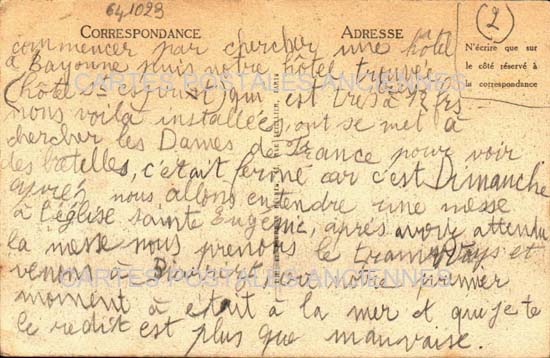 641023
(2)
CORRESPONDANCE
ADRESSE
N'écrire que sur
le côté réservé à
la correspondance
CARTES POSTALES ANCIENNES
commencer par chercher une hôtel
à Bayonne puis notre hôtel trouvée
(hôtel qui est très à 12 frs
nous voilà installées, ont se met à
chercher les Dames de France pour voir
des batelles, c'était fermé car c'est Dimanche
après nous allons entendre une messe
à l'église sainte Eugénie, après avoir attendu
la messe nous prenons le tramways et
venons à Biarritz car notre premier
moment à était à la mer et que je te
le redit est plus que mauvaise.
CARTES POSTALES ANCIENNES